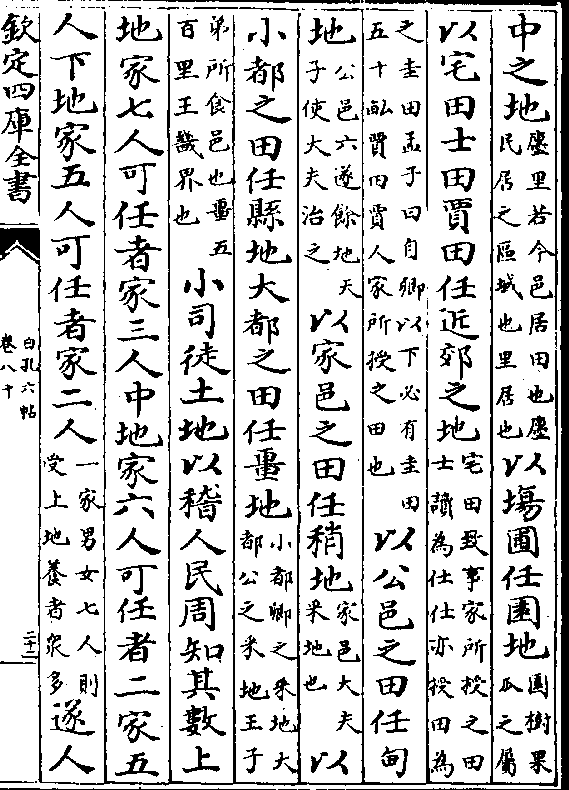 中之地廛里若今邑居田也廛民居之區域也里居也以塲圃任園地圃樹果瓜之屬
以宅田士田賈田任近郊之地宅田致事家所授之田士讀為仕仕亦授田為
之圭田孟子曰自卿以下必有圭田五十畝賈田賈人家所授之田也以公邑之田任甸
地公邑六遂餘地天子使大夫治之以家邑之田任稍地家邑大夫采地也以
小都之田任縣地大都之田任畺地小都卿之采地大都公之采地王子
弟所食邑也畺五百里王畿界也小司徒土地以稽人民周知其數上
地家七人可任者家三人中地家六人可任者二家五
人下地家五人可任者家二人一家男女七人則受上地養者衆多遂人
欽定四庫全書
白孔六帖
卷八十
二十二